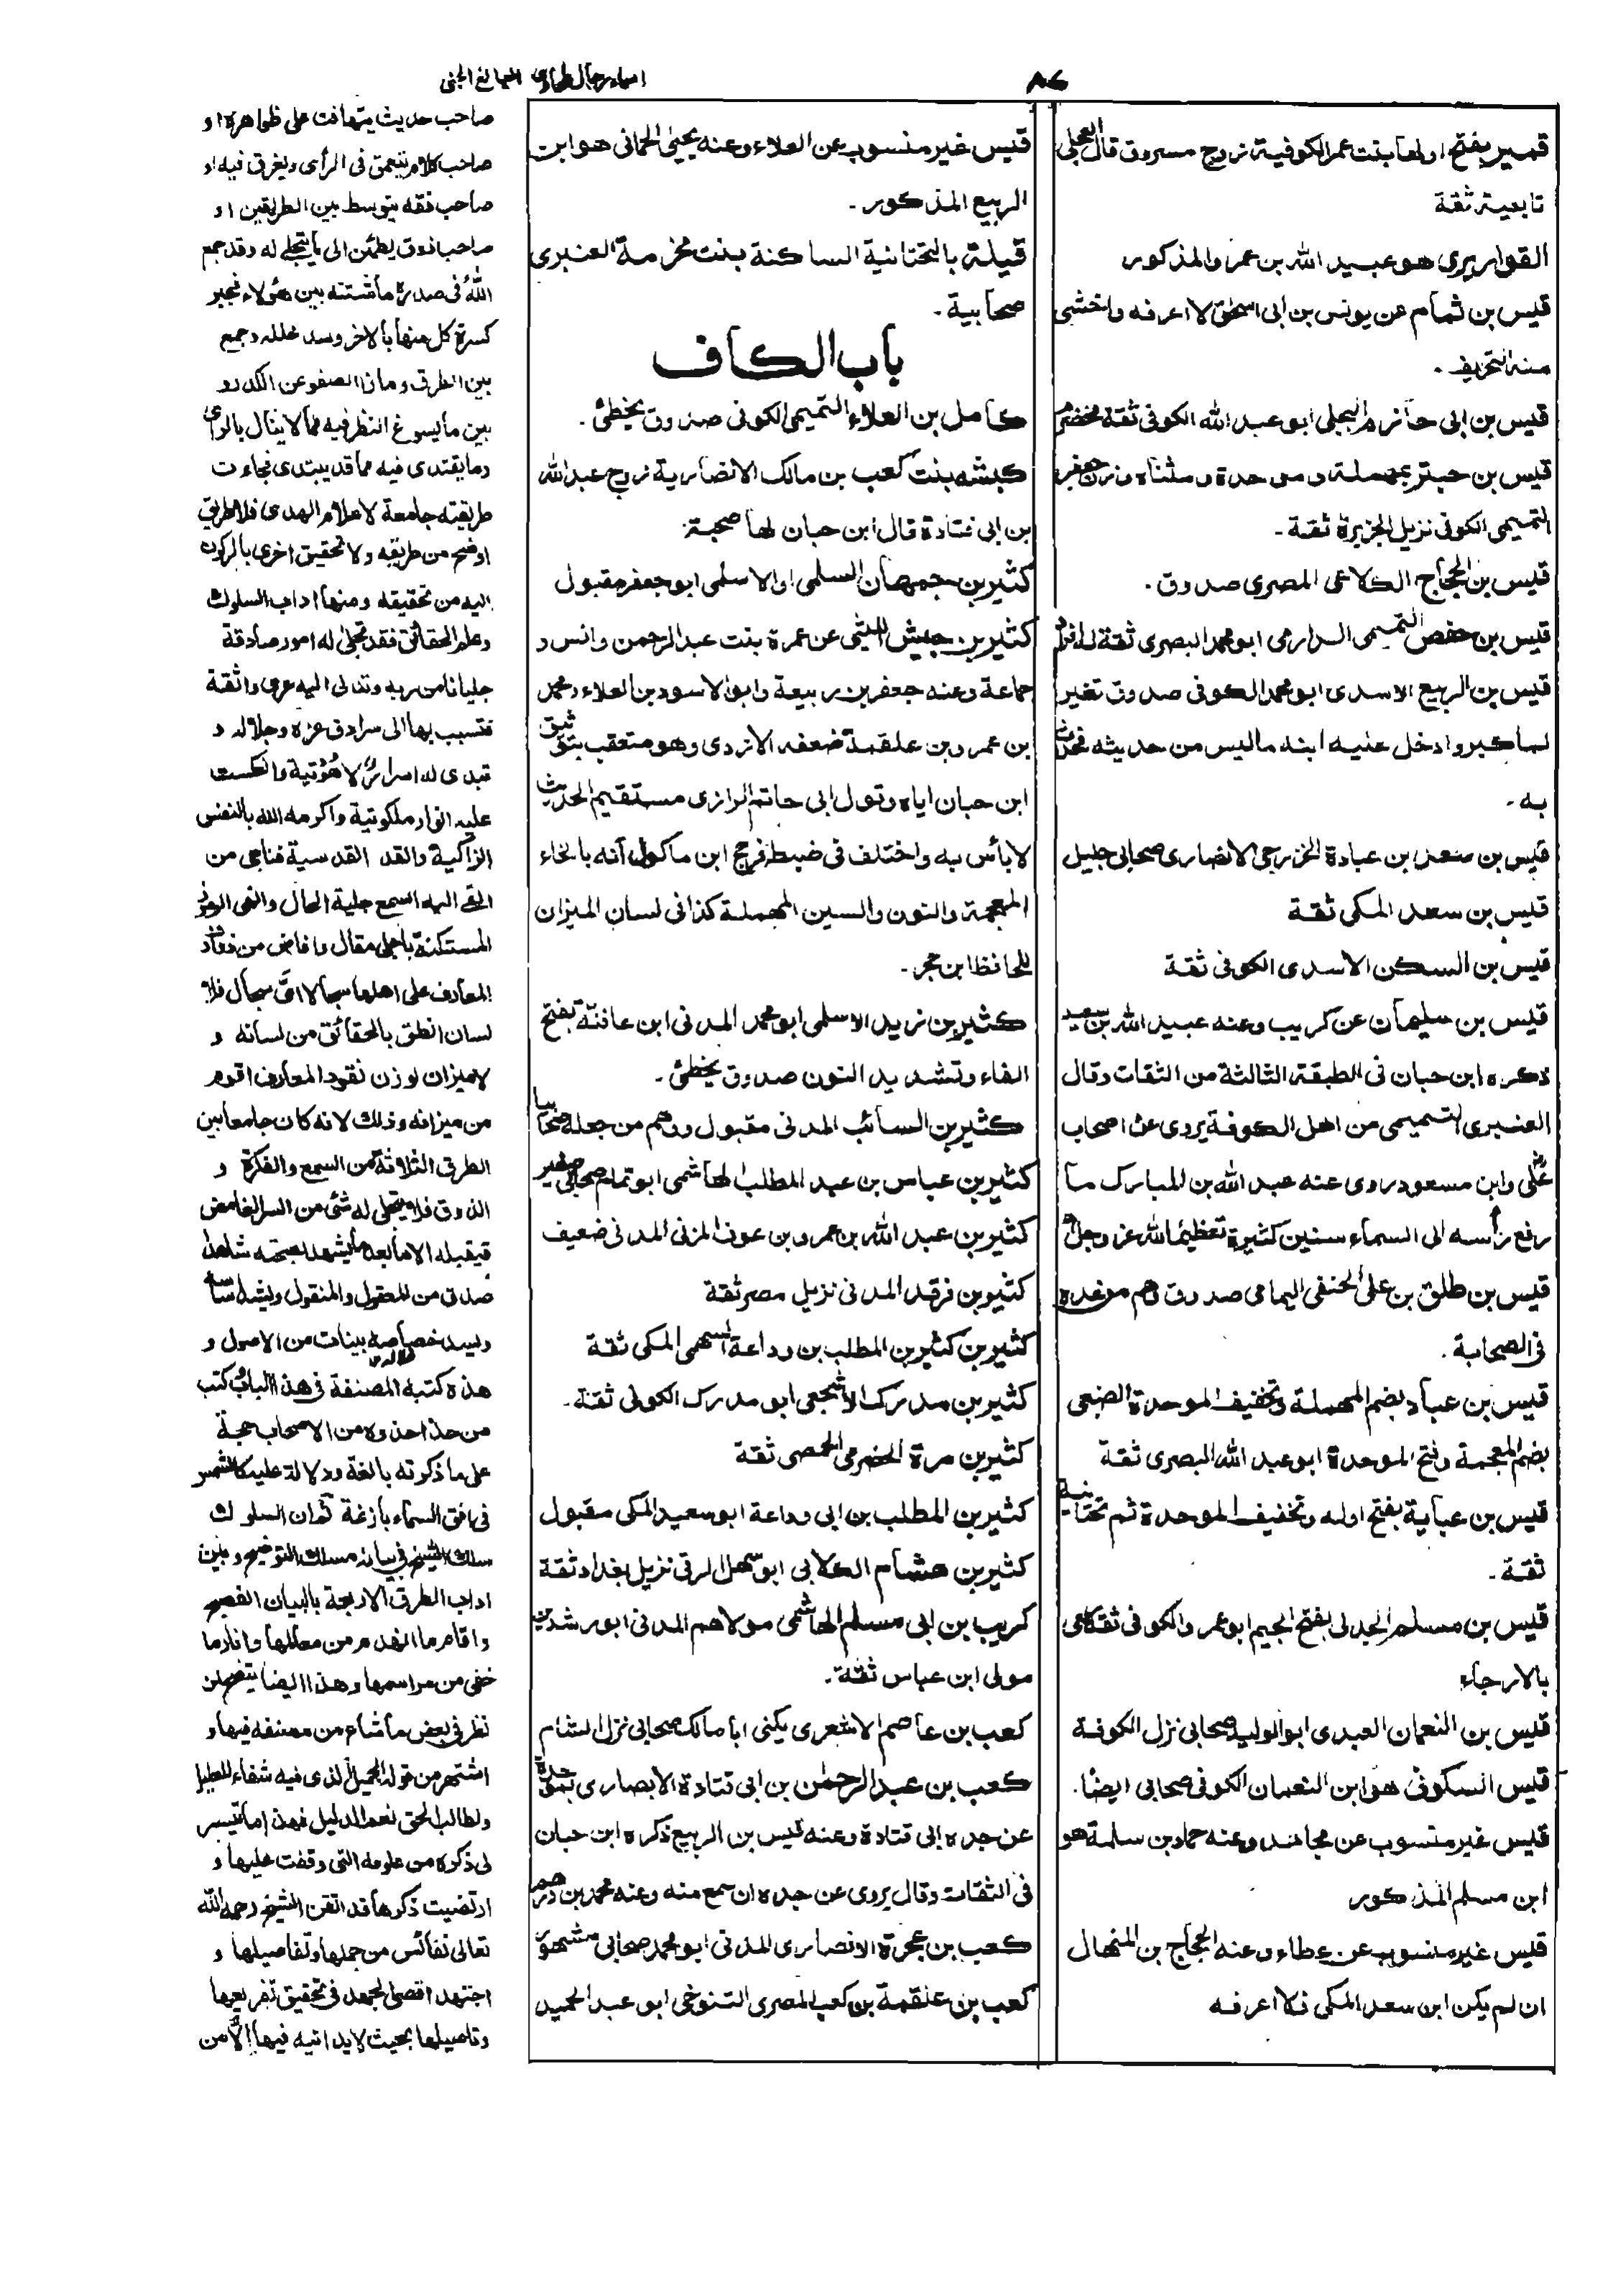 ۸۶
اسماء رجال طحاوی
اليانع الجنى
قمير بفتح اولها بنت عمر الكوفية زوج مسروق قال العجلى
تابعية ثقة
القواريرى هو عبيد الله بن عمر والمذكور
قيس بن ثمام عن يونس بن ابى اسحق لا اعرفه واخشى
منه التحريف .
قيس بن ابى حازم البجلى ابو عبد الله الكوفى ثقة مخضرم
قيس بن حبتر بمهملة وموحدة ومثناه وزن جعفر
التميمى الكوفى نزيل الجزيرة ثقة -
قيس بن الحجاج الكلاعى المصرى صدوق .
قيس بن حفص التميمى الدارمى ابو محمد البصرى ثقة له افراد
قيس بن الربيع الاسدى ابو محمد الكوفى صدوق تغير
لما كبر وادخل عليه ابنه ماليس من حديثه فحدث
به -
قيس بن سعد بن عبادة الخزرجى الانصارى صحابى جليل
قيس بن سعد المكى ثقة
قيس بن السكن الاسدى الكوفى ثقة
قيس بن سليمان عن كريب وعنه عبيد الله بن سعيد
ذكره ابن حبان فى الطبقة الثالثة من الثقات وقال
العنبرى التميمى من اهل الكوفة يروى عن اصحاب
على وابن مسعود روى عنه عبد الله بن المبارك ما
رفع رأسه الى السماء سنين كثيرة تعظيما لله عز وجل
قيس بن طلق بن على الحنفى اليمامى صدوق وهم من عده
فى الصحابة .
قيس بن عباد بضم المهملة وتخفيف الموحدة الضبعى
بضم المعجمة وفتح الموحدة ابو عبد الله البصرى ثقة
قيس بن عباية بفتح اوله وتخفيف الموحدة ثم تحتانية
ثقة -
قيس بن مسلم الجدلى بفتح الجيم ابو عمر والكوفى ثقة رمى
بالارجاء
قيس بن النعمان العبدى ابو الوليد صحابى نزل الكوفة
قيس السكونى هو ابن النعمان الكوفى صحابى ايضا .
قيس غير منسوب عن مجاهد وعنه حماد بن سلمة هو
ابن مسلم المذكور
قيس غير منسوب عن عطاء وعنه الحجاج بن المنهال
ان لم يكن ابن سعد المكى فلا اعرفه
قيس غير منسوب عن العلاء وعنه يحيى الحمانى هو ابن
الربيع المذكور -
قيلة بالتحتانية الساكنة بنت مخرمة العنبرى
صحابية -
باب الكاف
كامل بن العلاء التميمى الكوفى صدوق يخطئ .
كبشه بنت كعب بن مالك الانصارية زوج عبد الله
بن ابى قتادة قال ابن حبان لها صحبة
كثير بن جمهان السلمى او الاسلمى ابو جعفر مقبول
كثير بن حبيش الليثى عن عمرة بنت عبد الرحمن وانس و
جماعة وعنه جعفر بن ربيعة وابو الاسود بن العلاء ومحمد
بن عمرو بن علقمة ضعفه الازدى وهو متعقب بتوثيق
ابن حبان اياه وقول ابى حاتم الرازى مستقيم الحديث
لا بأس به واختلف فى ضبطه فرجح ابن ماكولا انه بالخاء
المعجمة والنون والسين المهملة كذا فى لسان الميزان
للحافظ ابن حجر -
كثير بن زيد الاسلمى ابو محمد المدنى ابن مافنة بفتح
الفاء وتشديد النون صدوق يخطئ -
كثير بن السائب المدنى مقبول ووهم من جعله صحابيا
كثير بن عباس بن عبد المطلب الهاشمى ابو تمام صحابى صغير
كثير بن عبد الله بن عمرو بن عوف المزنى المدنى ضعيف
كثير بن فرقد المدنى نزيل مصر ثقة
كثير بن كثير بن المطلب بن وداعة السهمى المكى ثقة
كثير بن مدرك الاشجعى ابو مدرك الكوفى ثقة -
كثير بن مرة الحضرمى الحمصى ثقة
كثير بن المطلب بن ابى وداعة ابو سعيد المكى مقبول
كثير بن هشام الكلابى ابو سهل الرقى نزيل بغداد ثقة
كريب بن ابى مسلم الهاشمى مولاهم المدنى ابو رشدين
مولى ابن عباس ثقة -
كعب بن عاصم الاشعرى يكنى ابا مالك صحابى نزل الشام
كعب بن عبد الرحمن بن ابى قتادة الانصارى
عن جده ابى قتادة وعنه قيس بن الربيع ذكره ابن حبان
فى الثقات وقال يروى عن جده ان سمع منه وعنه محمد بن درهم
كعب بن عجرة الانصارى المدنى ابو محمد صحابى مشهور
كعب بن علقمة بن كعب المصرى التنوخى ابو عبد الحميد
صاحب حديث يتهافت على ظواهره او
صاحب كلام يتعمق فى الرأى ويغرق فيه او
صاحب فقه يتوسط بين الطريقين او
صاحب ذوق يطمئن الى ما يتجلى له وقد جمع
الله فى صدره ما شتته بين هؤلاء فجبر
كسرة كل منها بالاخر وسد خلله وجمع
بين الطرق وماز الصفو عن الكدر و
بين ما يسوغ النظر فيه مما لا ينال بالراى
وما يقتدى فيه مما قد يبتدى فجاءت
طريقته جامعة لاعلام الهدى فلا طريق
اوضح من طريقه ولا تحقيق احرى بالركون
اليه من تحقيقه ومنها اداب السلوك
وعلم الحقائق فقد تجلى له امور صادقة
جليانا من ربه وتدلى اليه عرى واثقة
فتسبب بها الى سرادق عزه وجلاله و
تبدى له اسرار لاهوتية وانعكست
عليه انوار ملكوتية واكرمه الله بالنفس
الزاكية والقد القدسية فناجى من
القى اليه السمع جلية الحال
المستكنة باجلى مقال وافاض من
المعارف على اهلها سجالا اى سجال فلا
لسان انطق بالحقائق من لسانه و
لا ميزان لوزن نقود المعارف اقوم
من ميزانه وذلك لانه كان جامعا بين
الطرق الثلاثة من السمع والفكرة و
الذوق فلا يتجلى له شئ من السر الغامض
فيقبله الا ما بعد ما يشهد بصحته شاهدا
صدق من المعقول والمنقول
ويسد خصاصه ببينات من الاصول و
هذه كتبه المصنفة فى هذا الباب وكتب
من حذا حذوه من الاصحاب حجة
على ما ذكرته بالغة ودلالة عليه كالشمس
فى افق السماء بازغة ثم ان السلوك
سلك الشيخ فى بيانه مسلك التوضيح وبين
اداب الطرق الاربعة بالبيان الفصيح
واقام ما انهدم من معالمها وانار ما
خفى من مراسمها وهذا ايضا يتضح لمن
نظر فى بعض ما شاع من مصنفه فيها و
اشتهر من قوله الجميل الذى فيه شفاء للعليل
ولطالب الحق نعم الدليل فهذا ما تيسر
لى ذكره من علومه التى وقفت عليها و
ارتضيت ذكرها قد اتقن الشيخ رحمه الله
تعالى نفائس من جملها وتفاصيلها و
اجتهد اقصى الجهد فى تحقيق تفريعها
وتاصيلها بحيث لا يدانيه فيها الا من